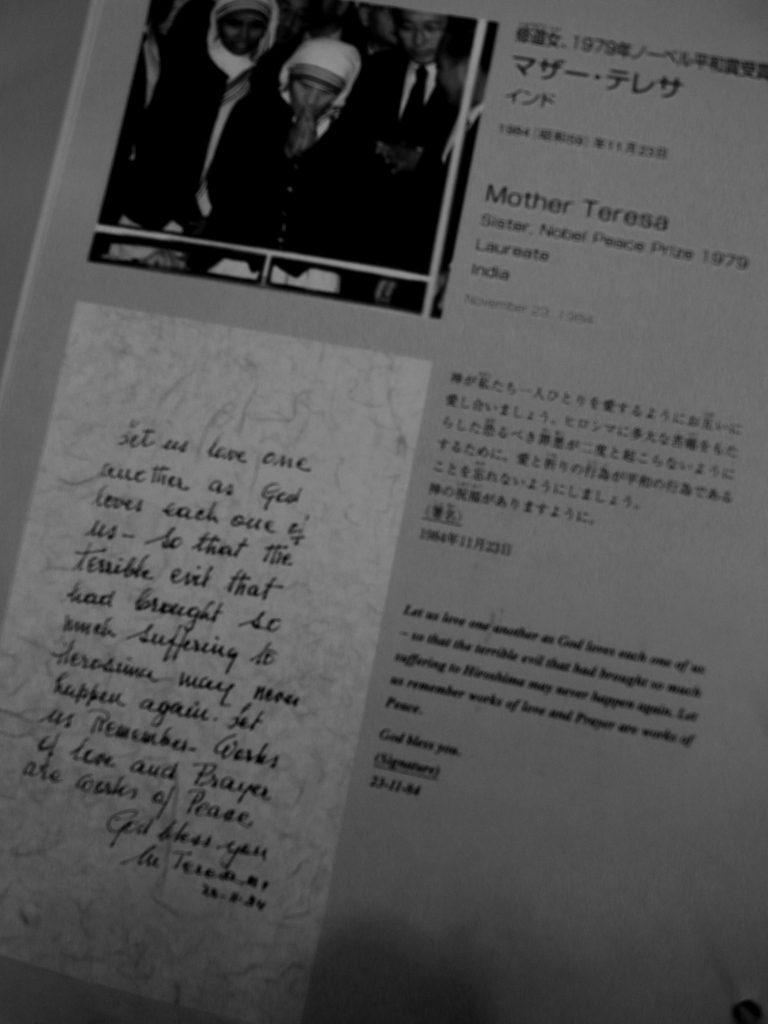 修道女、1979年ノーベル平和賞受賞
マザー・テレサ
インド
1984(昭和59)年11月23日
Mother Teresa
Sister, Nobel Peace Prize 1979
Laureate
India
November 23, 1984
神が私たち一人ひとりを愛するようにお互いに
愛し合いましょう。ヒロシマに多大な苦痛をもた
らした恐るべき罪悪が二度と起こらないように
するために。愛と祈りの行為が平和の行為である
ことを忘れないようにしましょう。
神の祝福がありますように。
(署名)
1984年11月23日
Let us love one another as God loves each one of us
– so that the terrible evil that had brought so much
suffering to Hiroshima may never happen again. Let
us remember works of love and Prayer are works of
Peace.
God bless you.
(Signature)
23-11-84
Let us love one
another as God
loves each one of
us – so that the
terrible evil that
had brought so
much suffering to
Heroshima may never
happen again. Let
us Remember- Works
of love and Prayer
are works of Peace.
God bless you
M Teresa m.c